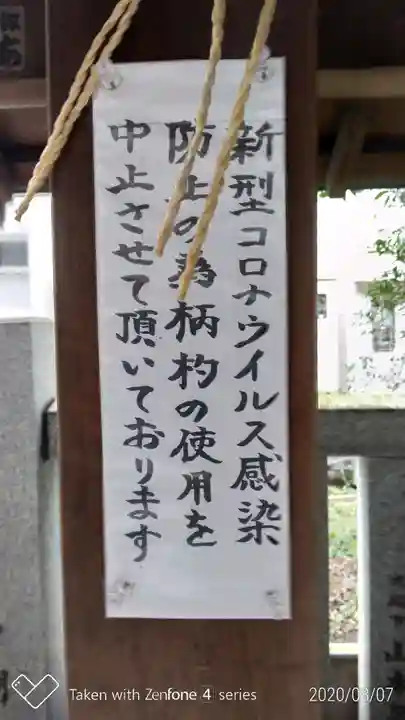 新型コロナウイルス感染
防止の為柄杓の使用を
中止させて頂いております
Taken with Zenfone 4 series
2020/03/07